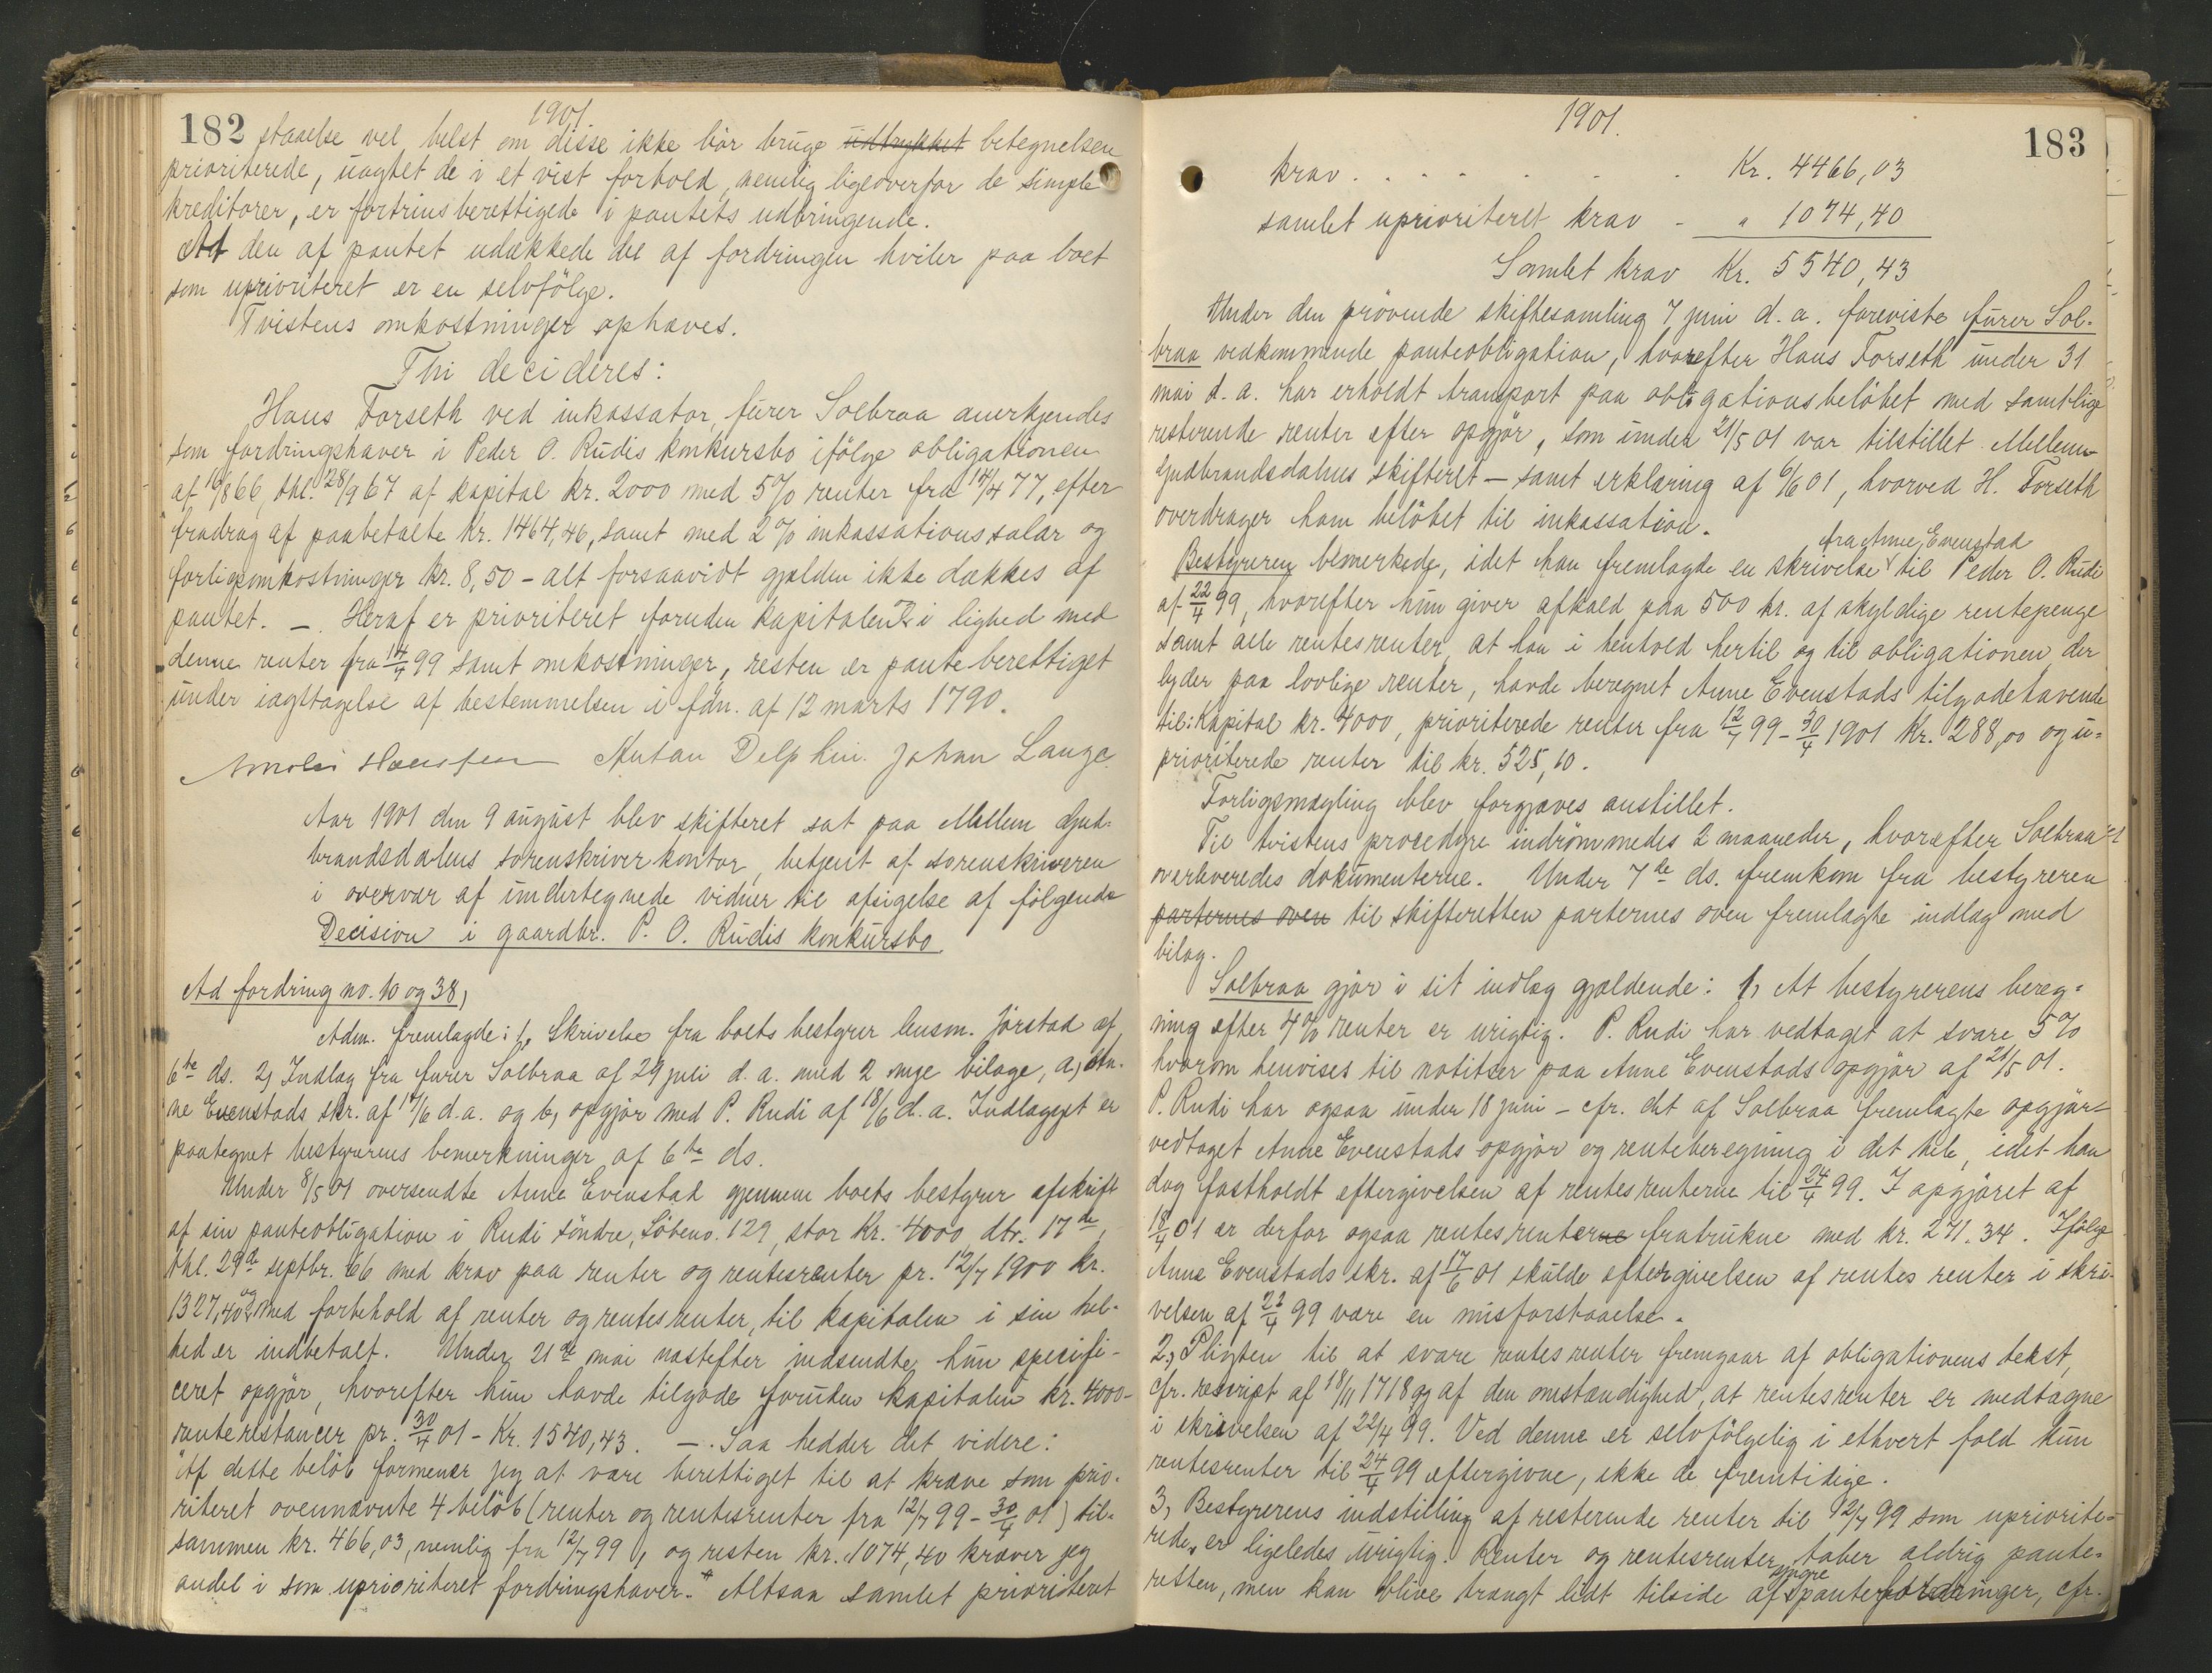 1901.
182 staaelse vel, helst om disse ikke bör bruge udtrykket betegnelsen
prioriterede, uagtet de i et vist forhold, nemlig ligeoverfor de simple
kreditorer, er fortrinsberettigede i pantets udbringende.
At den af pantet udækkede del af fordringen hviler paa boet
som uprioriteret er en selvfölge.
Tvistens omkostninger ophæves.
Thi decideres:
Hans Forseth ved inkassator, furer Solbraa anerkjendes
som fordringshaver i Peder O. Rudis konkursbo ifölge obligationen
af 16/8 66, thl. 28/9 67 af kapital kr. 2000 med 5% renter fra 14/4 77, efter
fradrag af paabetalte kr. 1464,46, samt med 2% inkassationssalær og
forligsomkostninger kr. 8,50 - alt forsaavidt gjælden ikke dækkes af
pantet. — Heraf er prioriteret foruden kapitalen i lighed med
denne renter fra 14/4 99 samt omkostninger, resten er panteberettiget
under iagttagelse af bestemmelsen i fdn. af 12 marts 1790.
Anton Delphin. Johan Lange.
Aar 1901 den 9 august blev skifteret sat paa Mellem Gud-
brandsdalens sorenskriverkontor, betjent af sorenskriveren
i overvær af undertegnede vidner til afsigelse af fölgende
Decision i gaardbr. P. O. Rudis konkursbo.
Ad fordring no. 10 og 38,
Adm. fremlagde: 1, Skrivelse fra boets bestyrer lensm. Jörstad af
6te ds. 2, Indlæg fra furer Solbraa af 29 juli d. a. med 2 nye bilage, a, An-
ne Evenstads skr. af 17/6 d.a. og b, opgjör med P. Rudi af 18/6 d. a. Indlægget er
paategnet bestyrerens bemerkninger af 6te ds.
Under 8/5 01 oversendte Anne Evenstad gjennem boets bestyrer afskrift
af sin panteobligation i Rudi söndre, Löbeno. 129, stor kr. 4000 dtr. 17de,
thl. 29de septbr. 66 med krav paa renter og rentesrenter pr. 12/7 1900 kr.
1327,40 og med forbehold af renter og rentesrenter, til kapitalen i sin hel-
hed er indbetalt. Under 21de mai næstefter indsendte hun specifi-
ceret opgjör, hvorefter hun havde tilgode foruden kapitalen kr. 4000-
renterestancer pr. 30/4 01 - Kr. 1540,43. —. Saa hedder det videre:
"Af dette belöb formener jeg at være berettiget til at kræve som prio-
riteret ovennævnte 4 belöb (renter og rentesrenter fra 12/7 99 - 30/4 01) til-
sammen kr. 466,03, nemlig fra 12/7 99, og resten kr. 1074,40 kræver jeg
andel i som uprioriteret fordringshaver." Altsaa samlet prioriteret
1901.
183
krav . . . . . . . Kr. 4466,03
samlet uprioriteret krav - " 1074,40
Samlet krav Kr. 5540,43
Under den prövende skiftesamling 7 juni d. a. foreviste furer Sol-
braa vedkommende panteobligation, hvorefter Hans Forseth under 31
mai d. a. har erholdt transport paa obligationsbelöbet med samtlige
resterende renter efter opgjör, som under 21/5 01 var tilstillet Mellem-
Gudbrandsdalens skifteret — samt erklæring af 6/6 01, hvorved H. Forseth
overdrager ham belöbet til inkassation.
fra Anne Evenstad
Bestyreren bemerkede, idet han fremlagde en skrivelse til Peder O. Rudi
af 22/4 99, hvorefter hun giver afkald paa 500 kr. af skyldige rentepenge
samt alle rentesrenter, at han i henhold hertil og til obligationen der
lyder paa lovlige renter, havde beregnet Anne Evenstads tilgodehavende
til: Kapital kr. 4000, prioriterede renter fra 12/7 99 - 30/4 1901 kr. 288,00 og u-
prioriterede renter til kr. 525,10.
Forligsmægling blev forgjæves anstillet.
Til tvistens procedyre indrömmedes 2 maaneder, hvorefter Solbraa
overleveredes dokumenterne. Under 7de ds. fremkom fra bestyreren
parternes oven til skifteretten parternes oven fremlagte indlæg med
bilag.
Solbraa gjör i sit indlæg gjældende: 1, At bestyrerens bereg-
ning efter 4% renter er urigtig. P. Rudi har vedtaget at svare 5%
hvorom henvises til notitser paa Anne Evenstads opgjör af 21/5 01.
P. Rudi har ogsaa under 18 juni - cfr. det af Solbraa fremlagte opgjör-
vedtaget Anne Evenstads opgjör og renteberegning i det hele, idet han
dog fastholdt eftergivelsen af rentesrenterne til 24/4 99. I opgjöret af
18/4 01 er derfor ogsaa rentesrenterne fratrukne med kr. 271.34. Ifölge
Anne Evenstads skr. af 17/6 01 skulde eftergivelsen af rentes renter i skri-
velsen af 22/4 99 være en misforstaaelse.
2, Pligten til at svare rentesrenter fremgaar af obligationens tekst,
cfr. rescript af 18/11 1718 og af den omstændighed, at rentesrenter er medtagne
i skrivelsen af 22/4 99. Ved denne er selvfölgelig i ethvert fald kun
rentesrenter til 24/4 99 eftergivne, ikke de fremtidige.
3, Bestyrerens indstilling af resterende renter til 12/7 99 som upriorite-
rede, er ligeledes urigtig. Renter og rentesrenter taber aldrig pante-
yngre
retten, men kan blive trængt lidt tilside af pantefordringer, cfr.